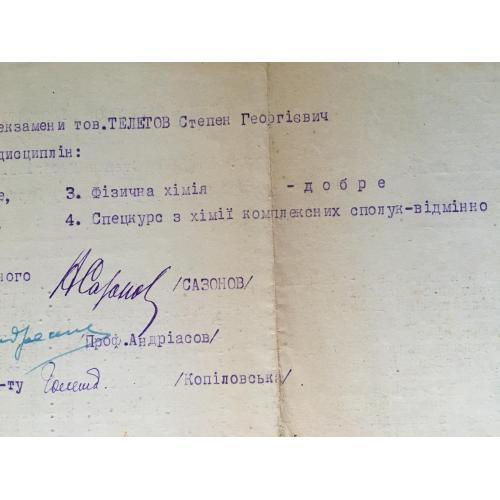 екзамени тов.ТЕЛЕТОВ Степен Георгієвич
дисциплін:
е, 3. Фізична хімія - д о б р е
4. Спецкурс з хімії комплексних сполук-відмінно
ного /САЗОНОВ/
/Проф.Андріасов/
-ту /Копіловська/